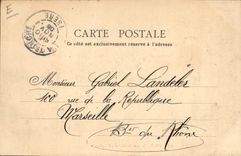 E
CARTE POSTALE
Ce côté est exclusivement réservé à l'adresse
Monsieur Gabriel Landelès
100 rue de la République
Marseille
B. ches du Rhône